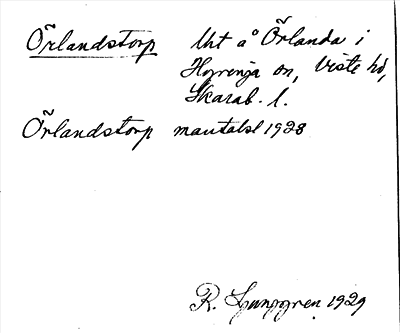 Örlandstorp Uht å Örlanda i
Hyrenja sn, Viste hd,
Skarab. l.
Örlandstorp mantalsl 1928
R. Ljunggren 1929